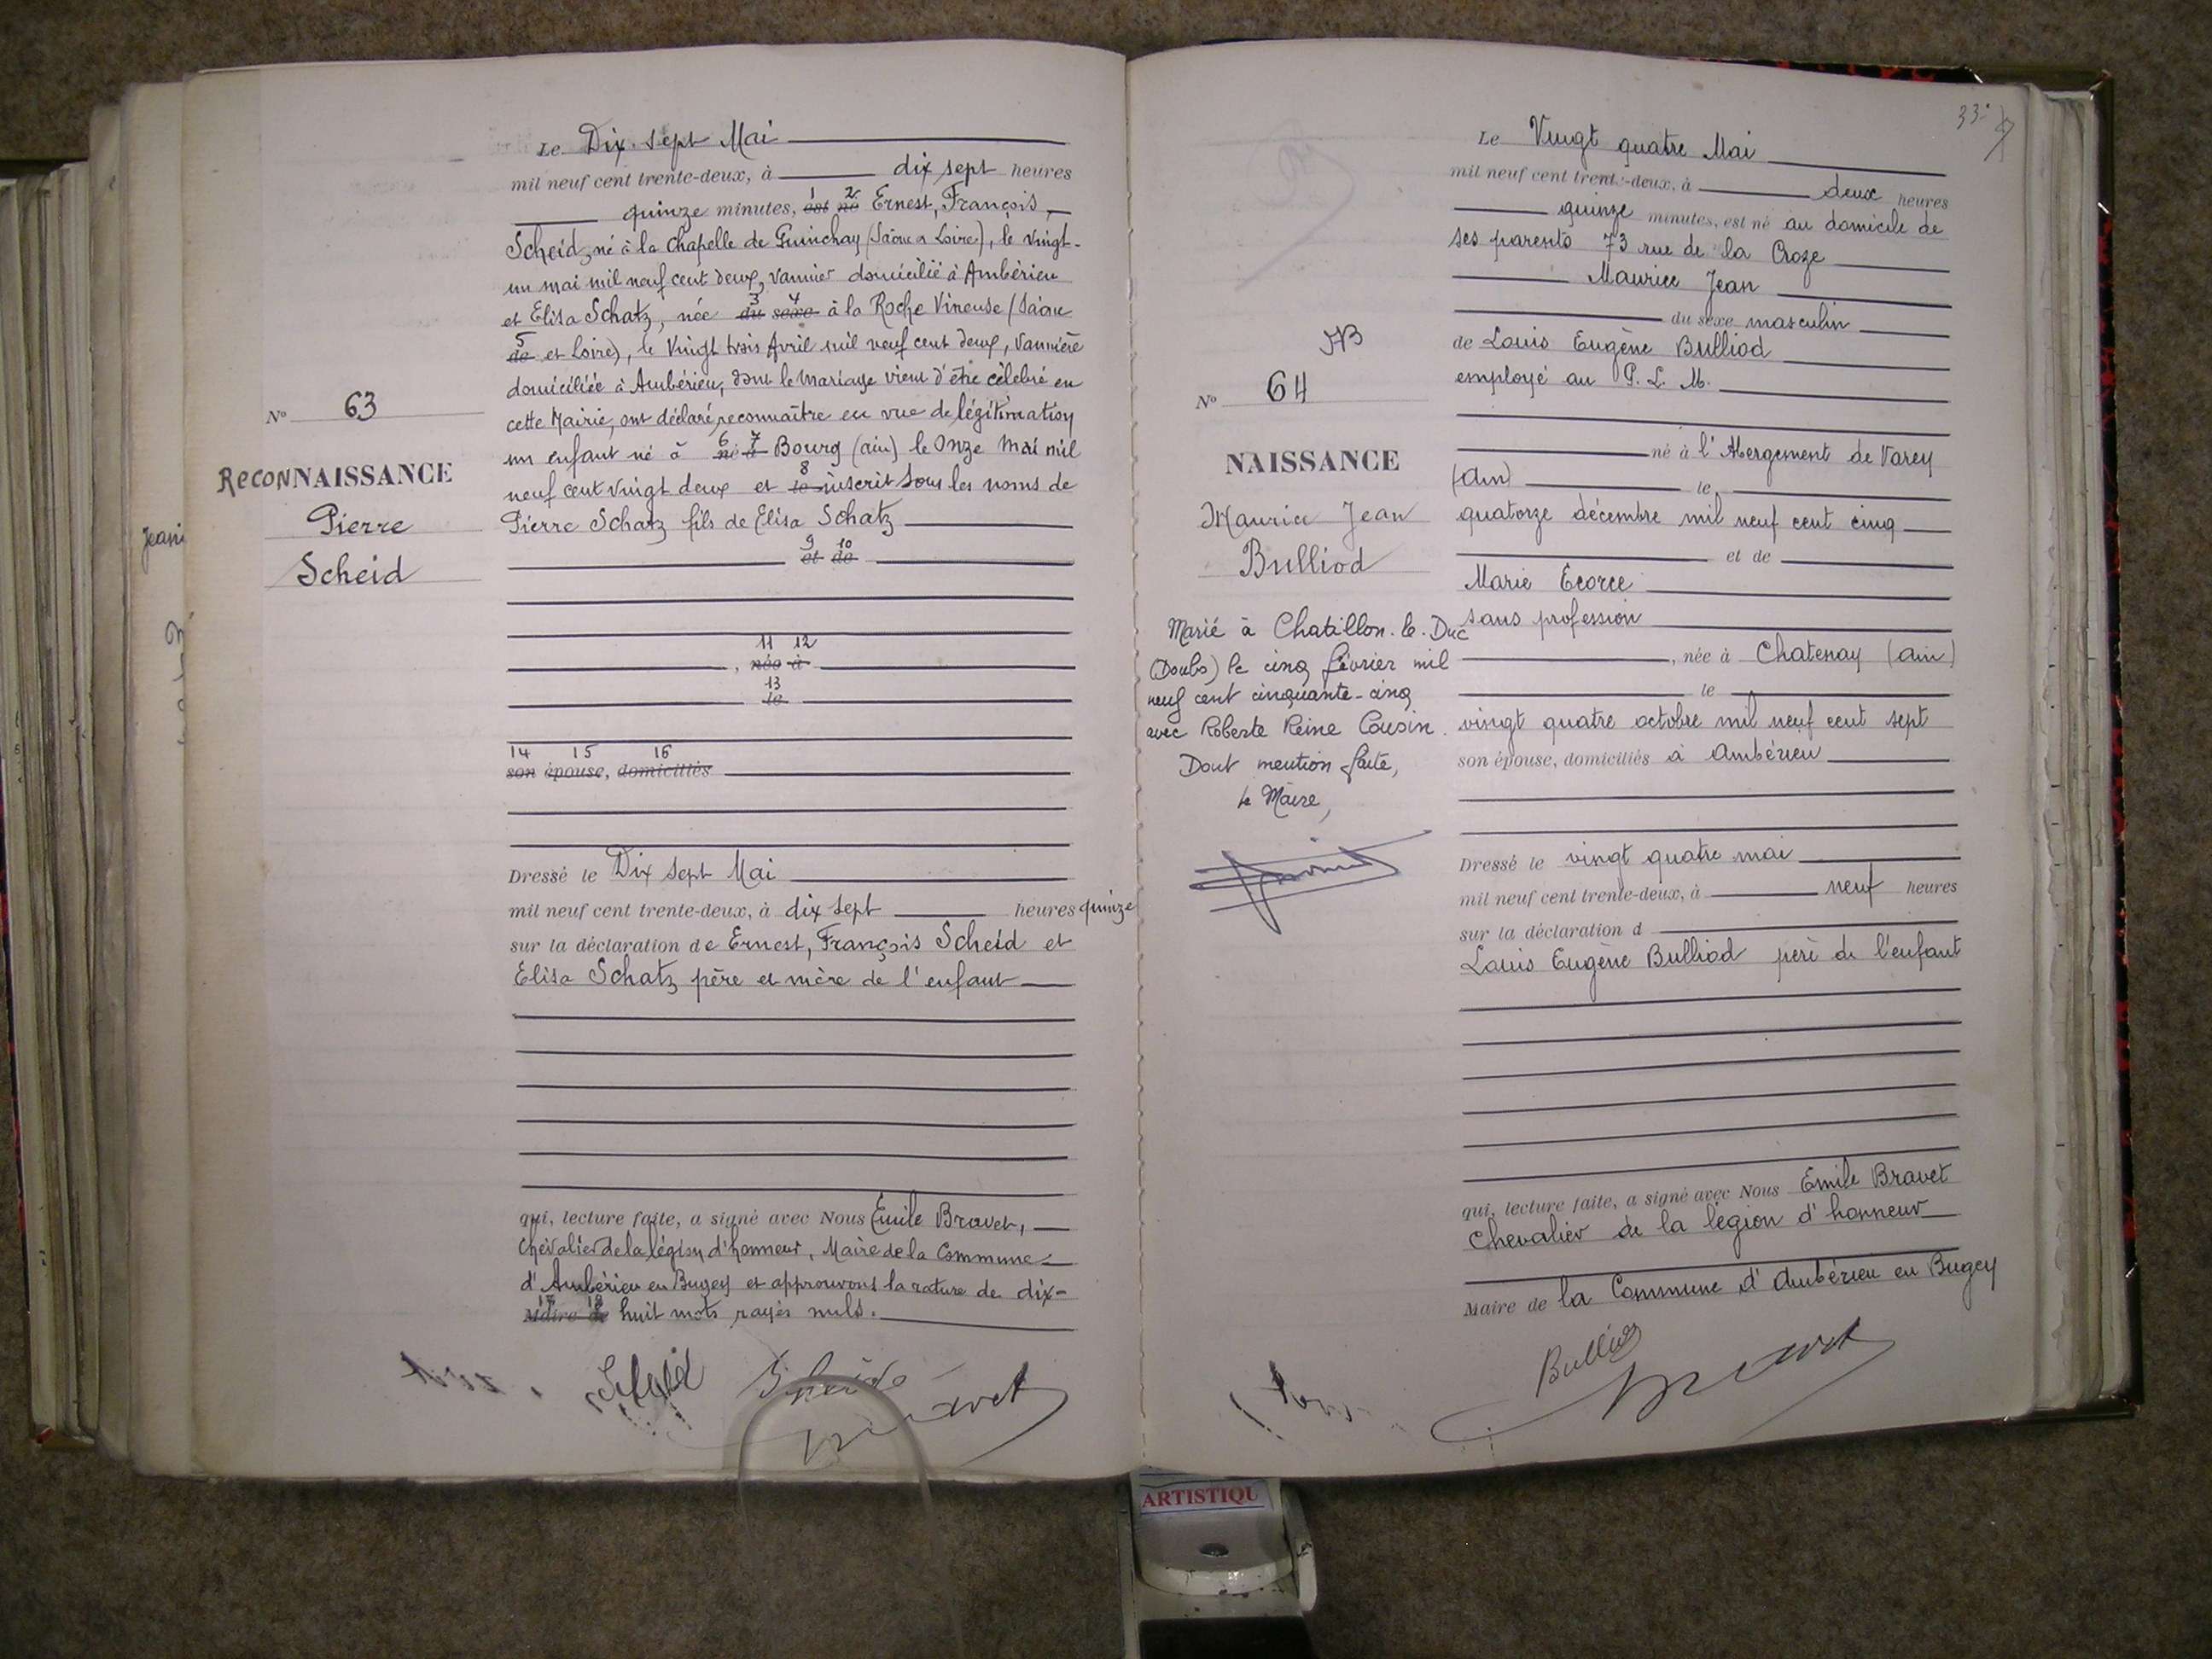 Le Dix-sept Mai
mil neuf cent trente-deux, à dix sept heures
1 2
quinze minutes, est né Ernest, François,
Scheid, né à la Chapelle de Guinchay (Saône et Loire), le vingt-
un mai mil neuf cent deux, vannier domicilié à Ambérieu
3 4
et Elisa Schatz, née du sexe à la Roche Vineuse (Saône
5
de et Loire), le Vingt trois Avril mil neuf cent deux, vannière
domiciliée à Ambérieu, dont le mariage vient d'être célébré en
cette Mairie, ont déclaré reconnaître en vue de légitimation
6 7
un enfant né à né à Bourg (ain) le Onze Mai mil
8
neuf cent vingt deux et le inscrit sous les noms de
Pierre Schatz fils de Elisa Schatz
9 10
et de
11 12
, née à
13
le
14 15 16
son épouse, domiciliés
Dressé le Dix sept Mai
mil neuf cent trente-deux, à dix sept heures quinze
sur la déclaration de Ernest, François Scheid et
Elisa Schatz père et mère de l'enfant
qui, lecture faite, a signé avec Nous Emile Bravet,
Chevalier de la légion d'honneur, Maire de la Commune
d'Ambérieu en Bugey et approuvons la rature de dix-
17 18
Maire de huit mots rayés nuls.
Scheid
Bravet
N° 63
RECONNAISSANCE
Pierre
Scheid
Jean
33
Le Vingt quatre Mai
mil neuf cent trente-deux, à deux heures
quinze minutes, est né au domicile de
ses parents 73 rue de la Croze
Maurice Jean
du sexe masculin
de Louis Eugène Bulliod
employé au P. L. M.
né à l'Abergement de Varey
(ain) le
quatorze décembre mil neuf cent cinq
et de
Marie Ecorce
sans profession
, née à Chatenay (ain)
le
vingt quatre octobre mil neuf cent sept
son épouse, domiciliés à Ambérieu
Dressé le vingt quatre mai
mil neuf cent trente-deux, à neuf heures
sur la déclaration d
Louis Eugène Bulliod père de l'enfant
qui, lecture faite, a signé avec Nous Emile Bravet
Chevalier de la légion d'honneur
Maire de la Commune d'Ambérieu en Bugey
Bulliod
Bravet
N° 64
NAISSANCE
Maurice Jean
Bulliod
Marié à Chatillon-le-Duc
(Doubs) le cinq février mil
neuf cent cinquante-cinq
avec Roberte Reine Cousin.
Dont mention faite,
le Maire,
ARTISTIQU